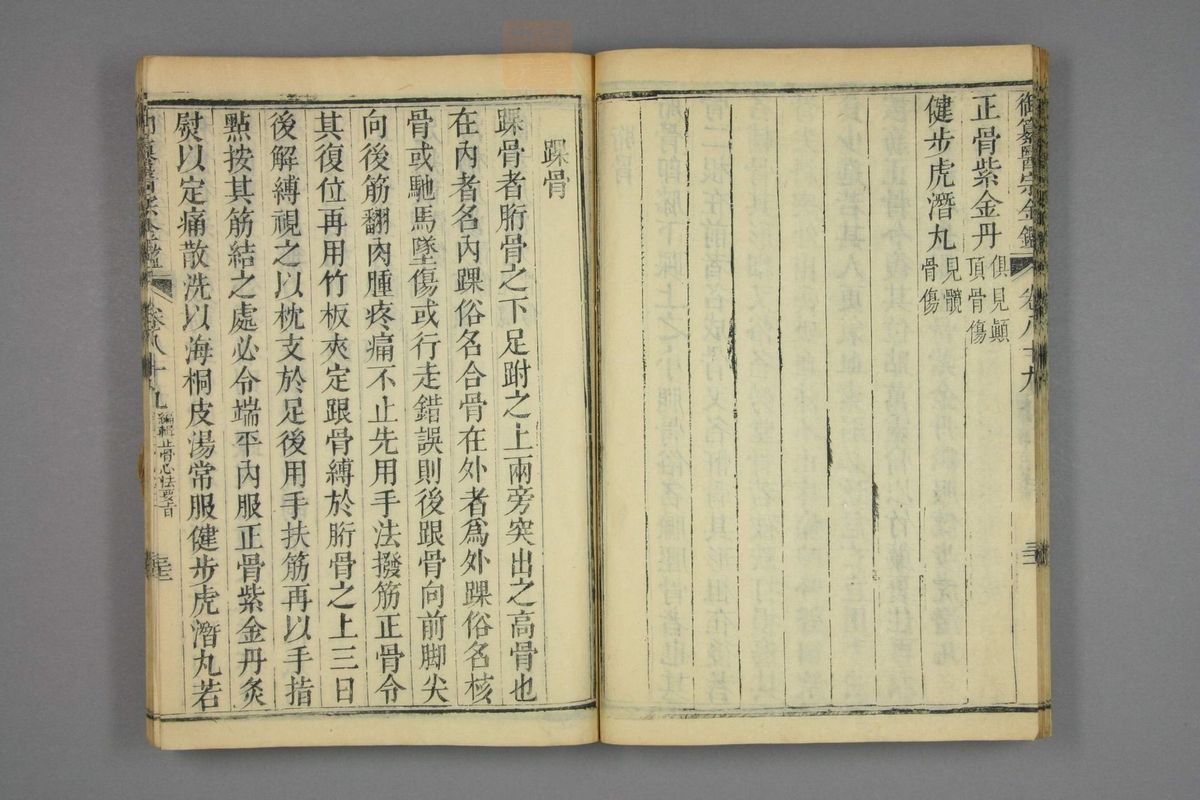 御纂醫宗金鑑 卷八十九
正骨紫金丹 俱見顛頂骨傷
健步虎潛丸 見髖骨傷
踝骨
踝骨者胻骨之下足跗之上兩旁突出之高骨也
在內者名內踝俗名合骨在外者爲外踝俗名核
骨或馳馬墜傷或行走錯誤則後跟骨向前脚尖
向後筋翻肉腫疼痛不止先用手法撥筋正骨令
其復位再用竹板夾定跟骨縛於胻骨之上三日
後解縛視之以枕支於足後用手扶筋再以手指
點按其筋結之處必令端平內服正骨紫金丹灸
熨以定痛散洗以海桐皮湯常服健步虎潛丸若
卷八十九 編輯正骨心法要旨